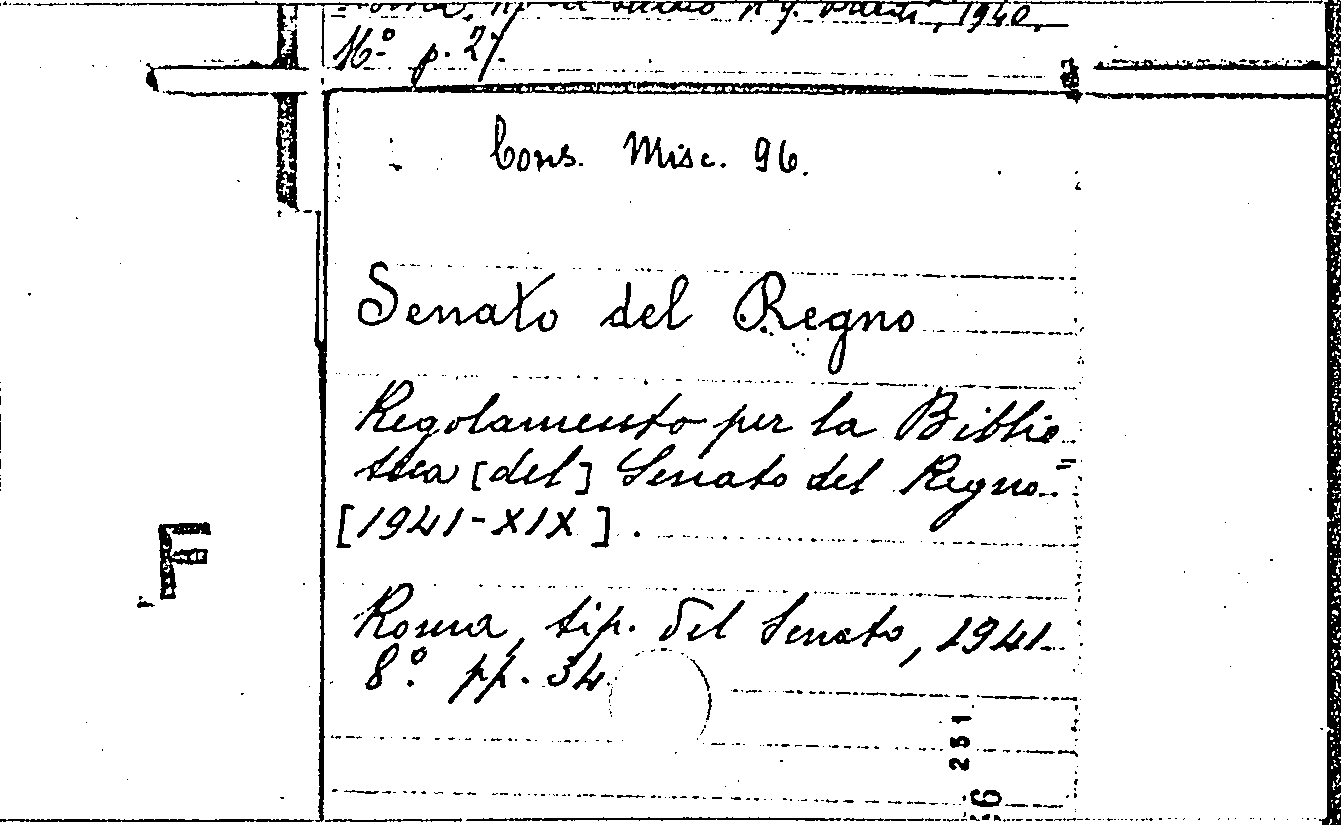 1940.
16º p. 27.
Cons. Misc. 96.
Senato del Regno
Regolamento per la Biblio=
teca [del] Senato del Regno.
[1941-XIX].
F
Roma, tip. del Senato, 1941
8º. pp. 34
251